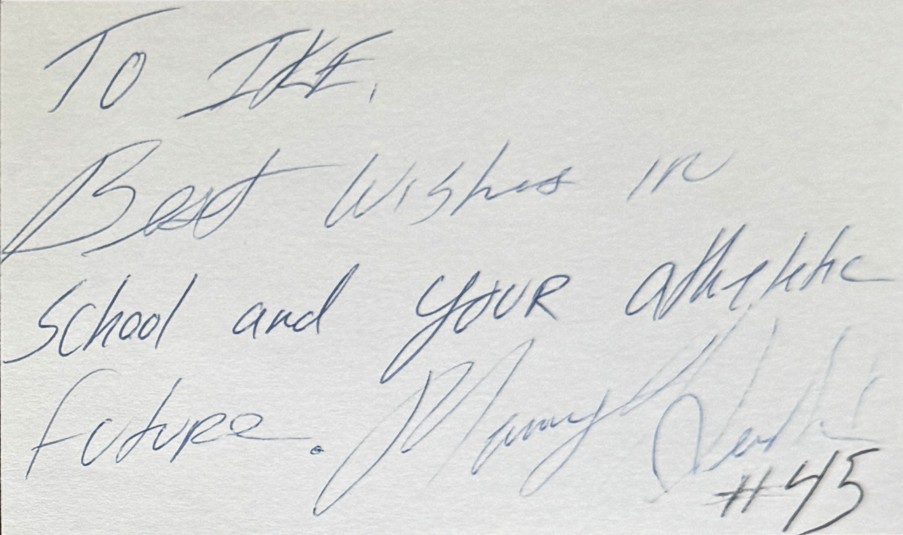 To IKE,
Best Wishes in
School and YOUR athletic
future. Manny
#45